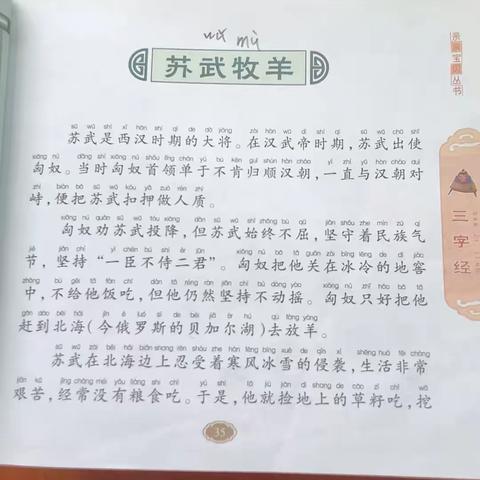 wǔ mù
苏武牧羊
苏武是西汉时期的大将。在汉武帝时期，苏武出使
匈奴。当时匈奴首领单于不肯归顺汉朝，一直与汉朝对
峙，便把苏武扣押做人质。
匈奴劝苏武投降，但苏武始终不屈，坚守着民族气
节，坚持“一臣不侍二君”。匈奴把他关在冰冷的地窖
中，不给他饭吃，但他仍然坚持不动摇。匈奴只好把他
赶到北海(今俄罗斯的贝加尔湖)去放羊。
苏武在北海边上忍受着寒风冰雪的侵袭，生活非常
艰苦，经常没有粮食吃。于是，他就捡地上的草籽吃，挖
35
亲亲宝贝丛书
三字经